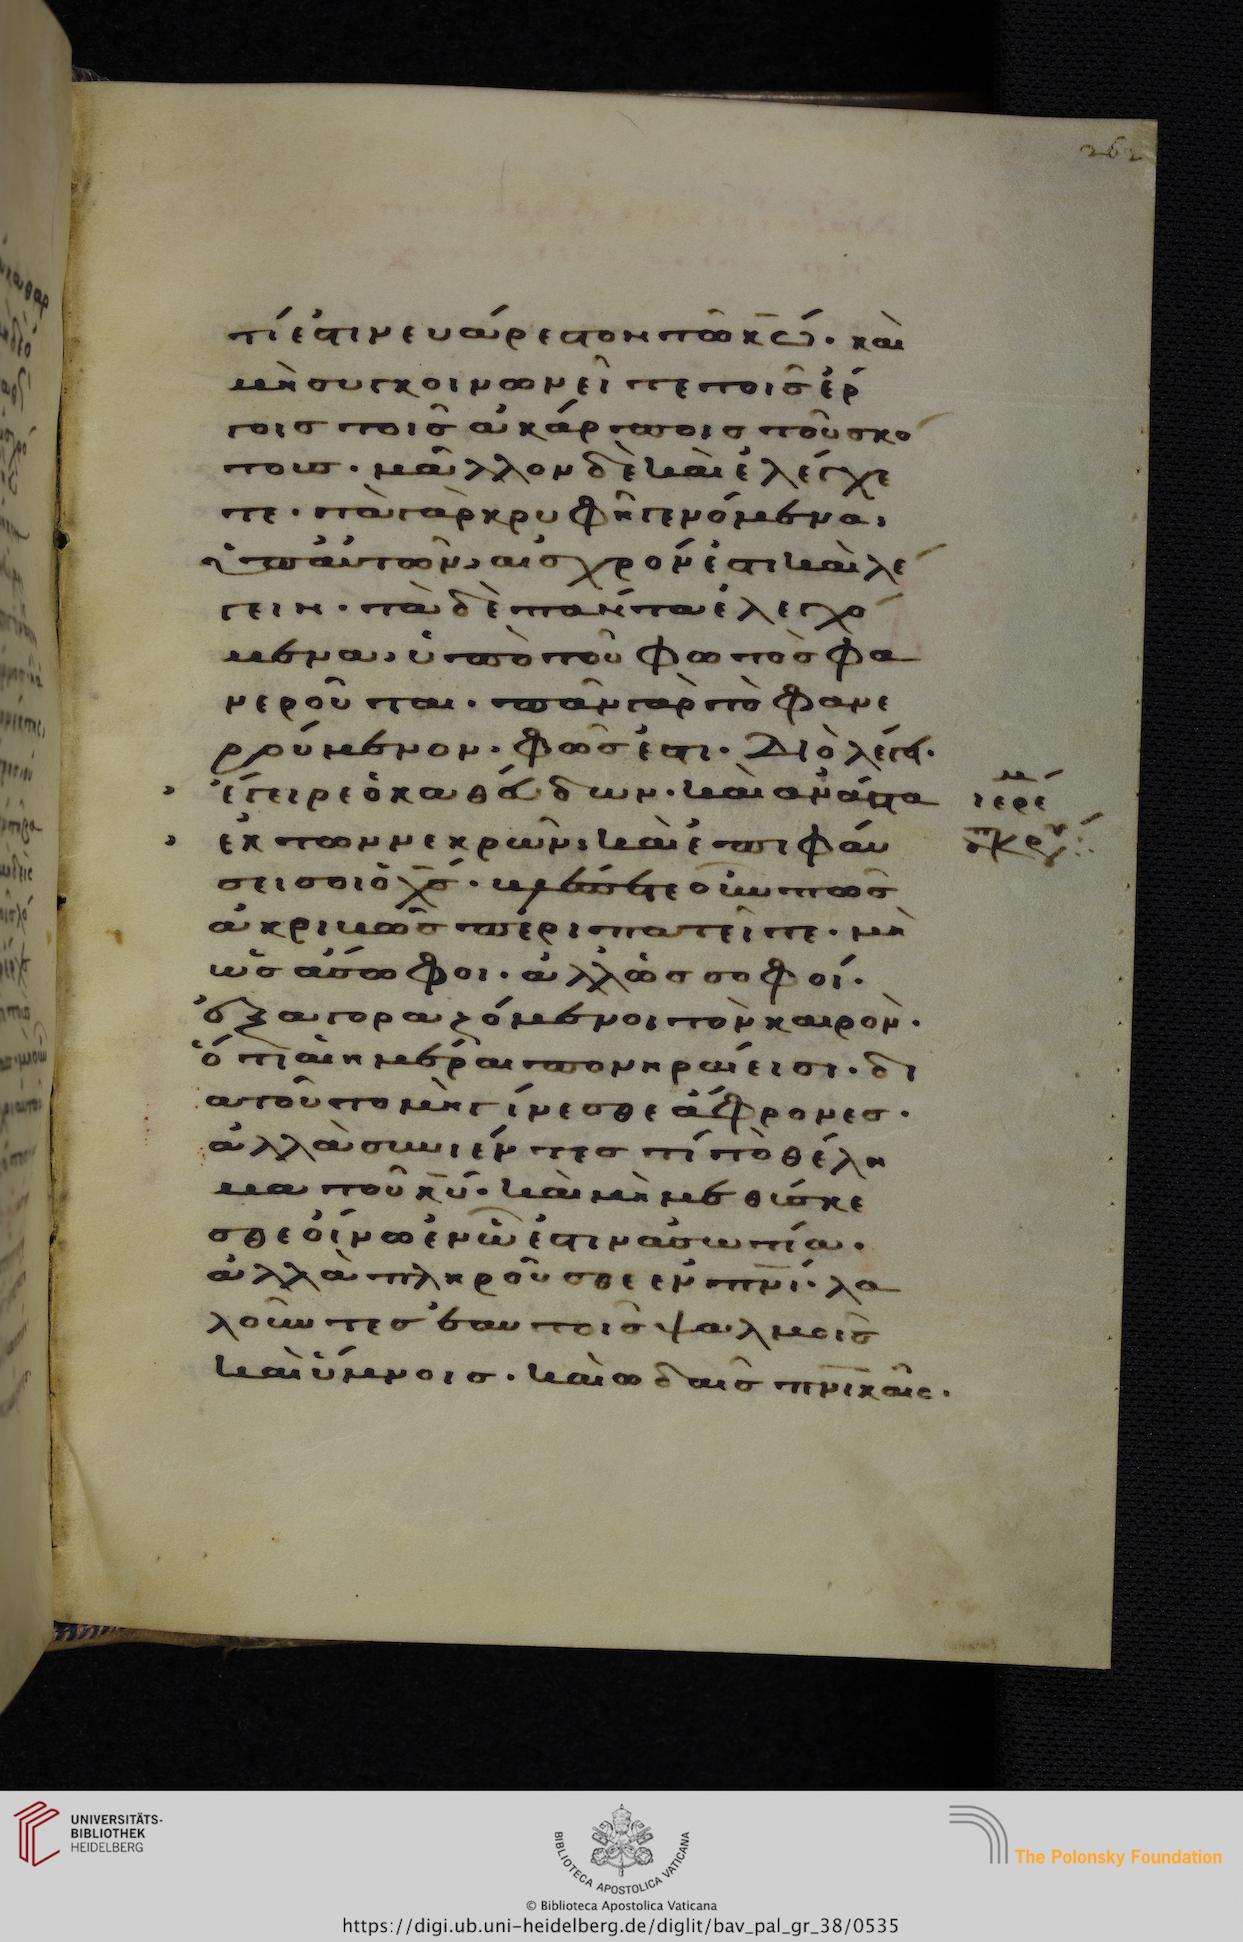 262
τί ἐστιν εὐάρεστον τῶ κ̅ω̅· καὶ
μὴ συγκοινωνεῖτε τοῖς ἔρ
γοις τοῖς ἀκάρποις τοῦ σκό
τους· μᾶλλον δὲ καὶ ἐλέγχε
τε· τὰ γὰρ κρυφῆ γενόμενα,
ὑπ' αὐτῶν, αἰσχρόν ἐστι καὶ λέ
γειν· τὰ δὲ πάντα ἐλεγχό
μενα, ὑπὸ τοῦ φωτὸς φα
νεροῦται· πᾶν γὰρ τὸ φανε
ρούμενον· φῶς ἐστι· Διὸ λέγει·
ἔγειρε ὁ καθεύδων· καὶ ἀνάστα
ἐκ τῶν νεκρῶν· καὶ ἐπιφαύ
σει σοι ὁ χ̅ς̅· βλέπετε οὖν πῶς
ἀκριβῶς περιπατεῖτε· μὴ
ὡς ἄσωφοι· ἀλλ' ὡς σοφοί·
ἐξαγοραζόμενοι τὸν καιρὸν·
ὅτι αἱ ἡμέραι πονηραί εἰσι· δι
ατοῦτο μὴ γίνεσθε ἄφρονες·
ἀλλὰ συνιέντες τί τὸ θέλη
μα τοῦ κ̅υ̅· καὶ μὴ μεθύσκε
σθε οἴνω ἐν ὧ ἐστιν ἀσωτία·
ἀλλὰ πληροῦσθε ἐν π̅ν̅ι̅· λα
λοῦντες ἑαυτοῖς ψαλμοῖς
καὶ ὕμνοις· καὶ ὠδαῖς π̅ν̅ικαῖς·
UNIVERSITÄTS-
BIBLIOTHEK
HEIDELBERG
BIBLIOTECA APOSTOLICA VATICANA
The Polonsky Foundation
© Biblioteca Apostolica Vaticana
https://digi.ub.uni-heidelberg.de/diglit/bav_pal_gr_38/0535